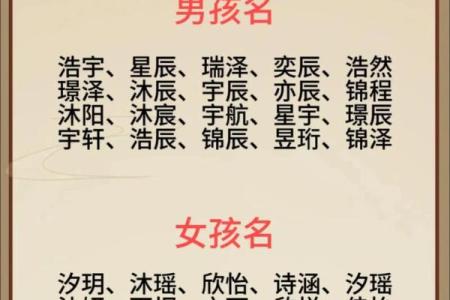 男孩名
浩宇、星辰、瑞泽、奕辰、浩然
璟泽、沐辰、宇辰、亦辰、锦程
沐阳、沐宸、宇航、星宇、璟辰
宇轩、浩辰、锦辰、昱珩、锦泽
女孩名
汐玥、沐瑶、欣怡、诗涵、汐瑶